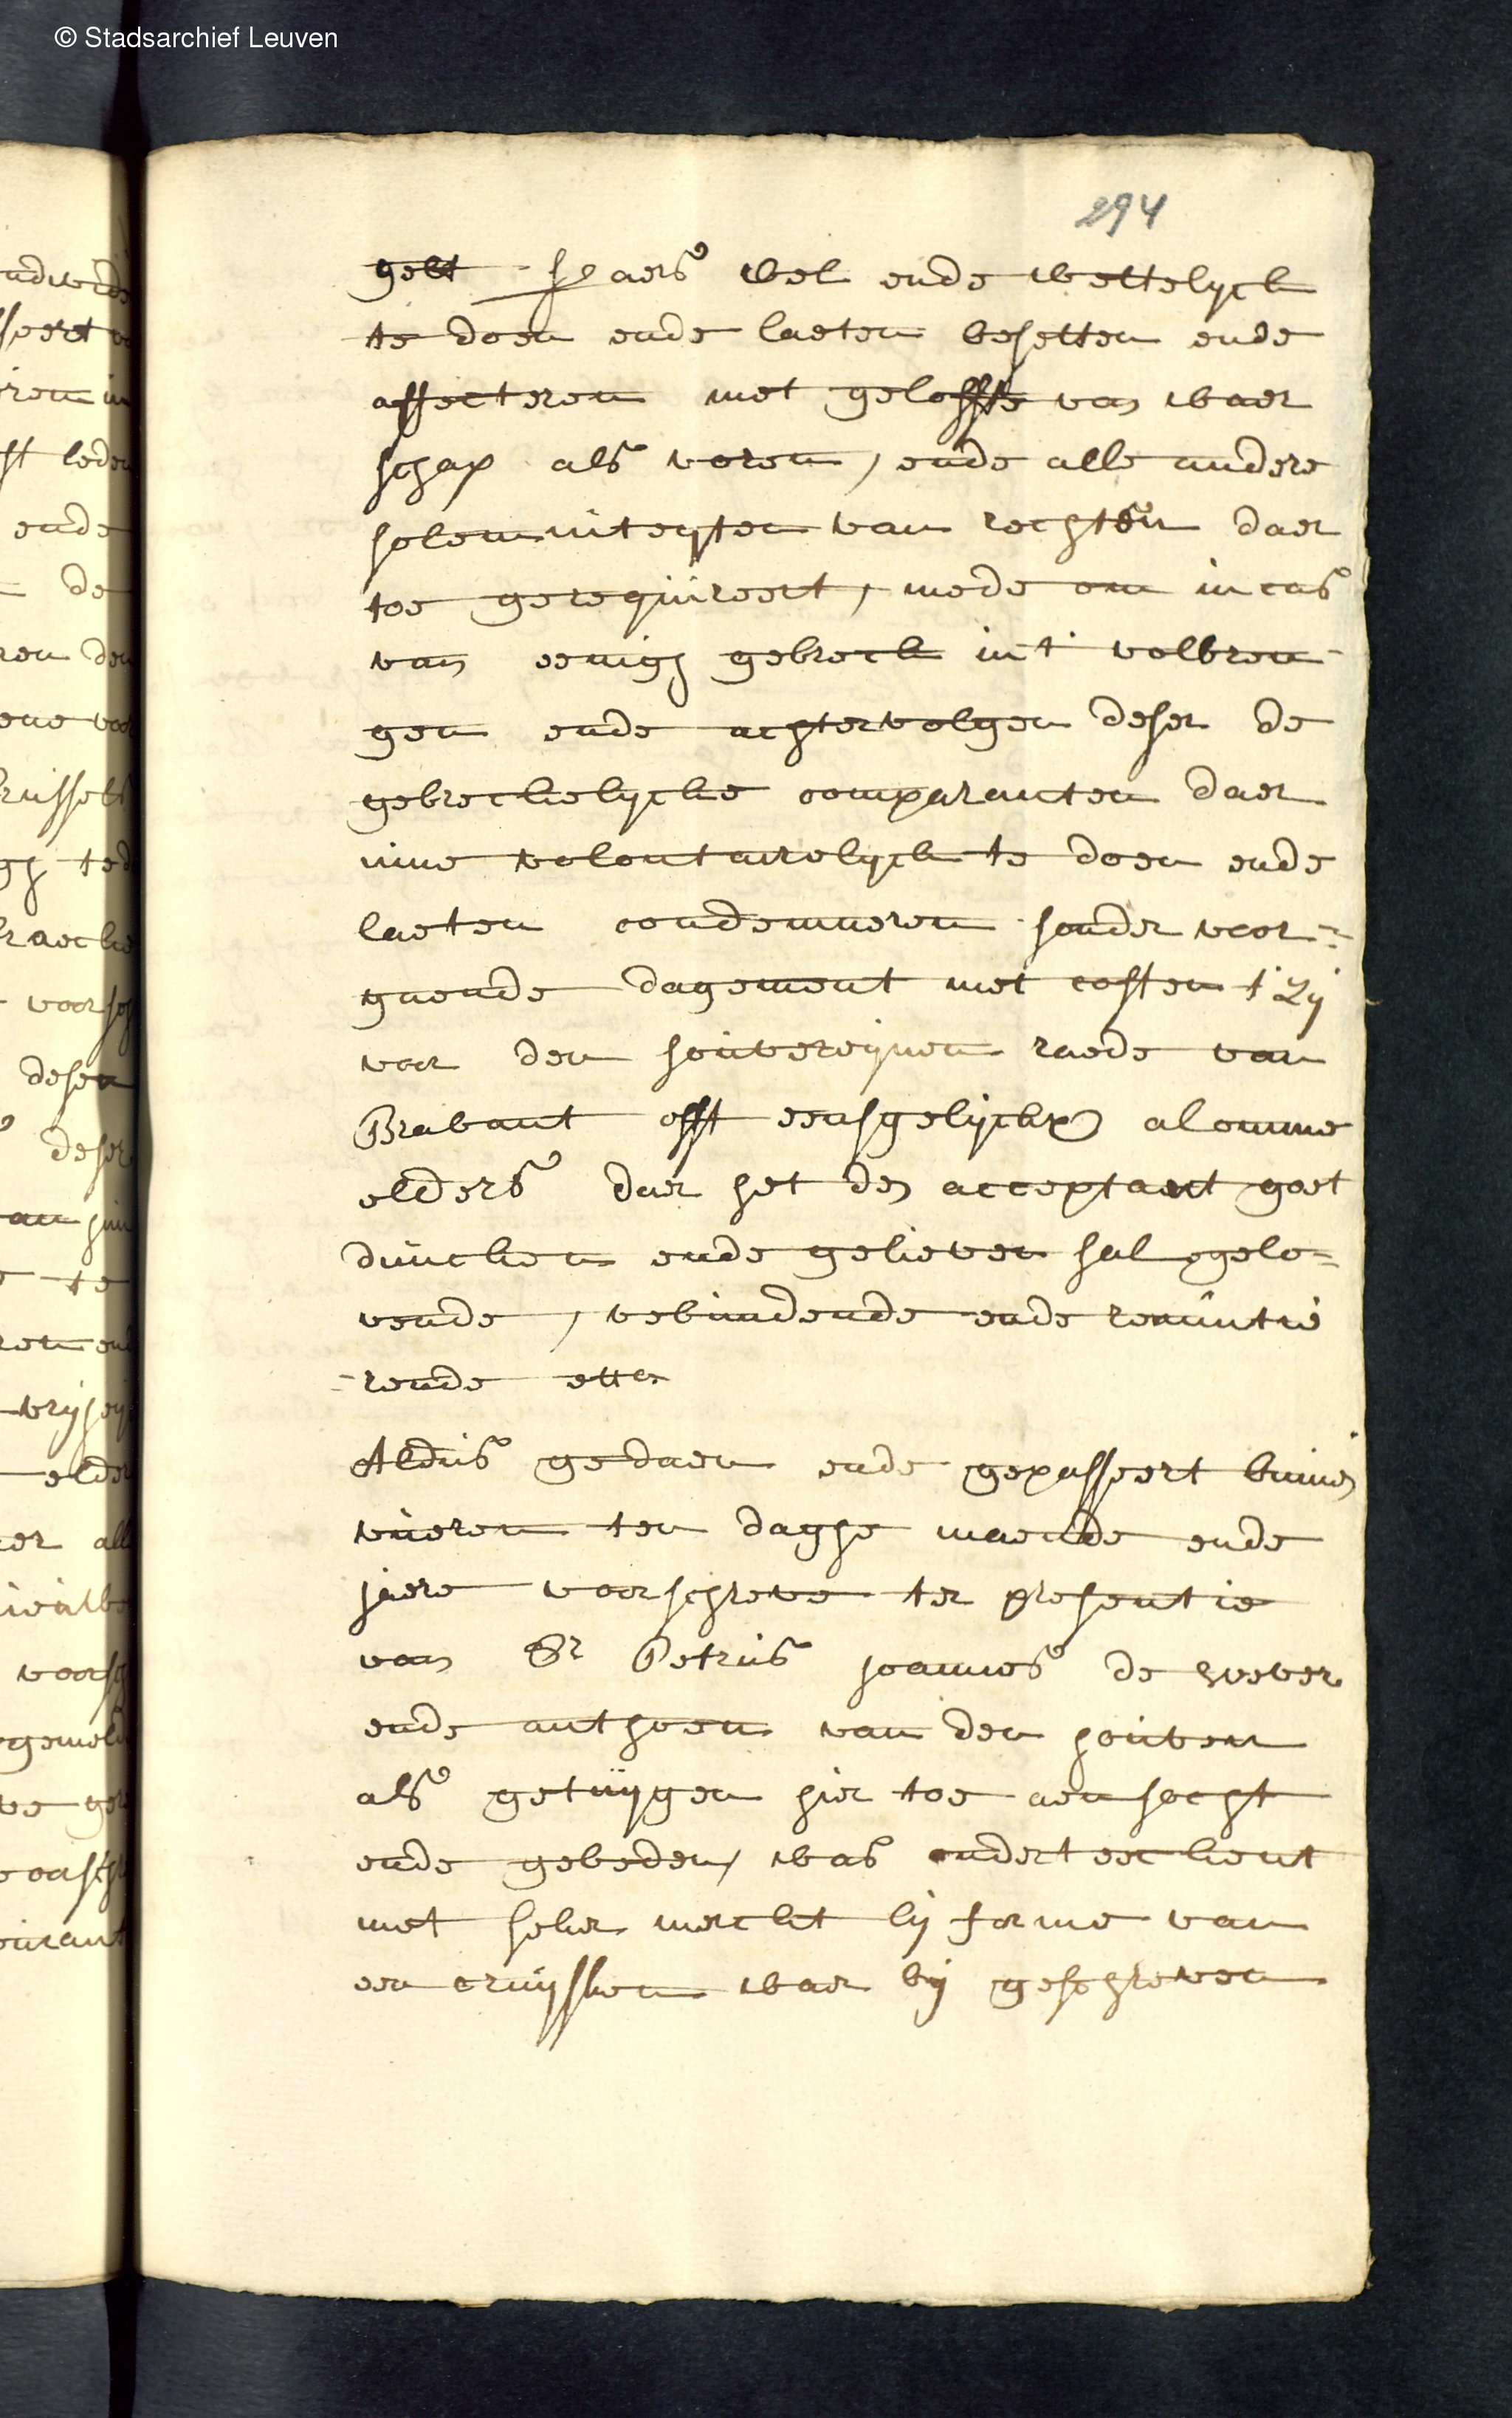 © Stadsarchief Leuven
294
gelt jaers wel ende wettelyck
te doen ende laeten besetten ende
affecteren met geloffte van waer
schap als voren, ende alle andere
solemniteyten van rechten daer
toe gerequireert, mede om in cas
van eenigh gebreck int volbren
gen ende achtervolgen deser de
gebreckelycke comparanten daer
inne volontairelyck te doen ende
laeten condemneren sonder voor=
gaende dagement met costen t'zij
voor den souvereijnen raede van
Brabant offt eensgelijckx alomme
elders daer het den acceptant goet
duncken ende gelieven sal gelo=
vende, verbindende ende renuntie
-rende etta
Aldus gedaen ende gepasseert binnen
vueren ten daghe maende ende
jaere voorschreve ter presentie
van Sr Petrus joannes de wever
ende anthoen van den houten
als getuijgen hier toe aensocht
ende gebeden, was onderteeckent
met seker merckt bij forme van
een cruijsken waer bij geschreven